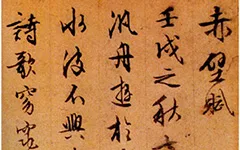 赤壁賦
壬戌之秋
汎舟遊於
水波不興
詩歌窈窕